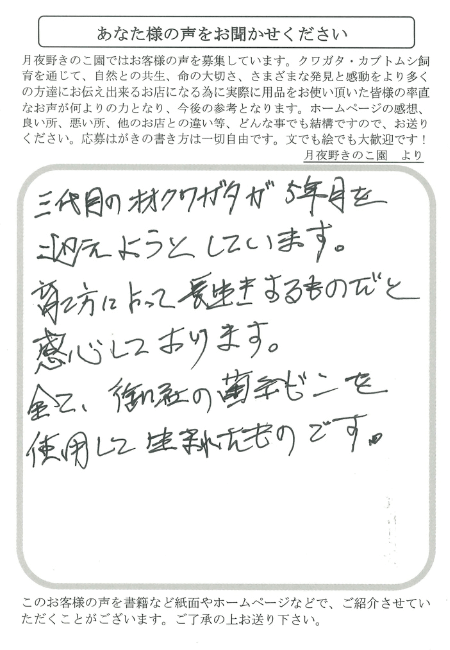 あなた様の声をお聞かせください
月夜野きのこ園ではお客様の声を募集しています。クワガタ・カブトムシ飼
育を通じて、自然との共生、命の大切さ、さまざまな発見と感動をより多く
の方達にお伝え出来るお店になる為に実際に用品をお使い頂いた皆様の率直
なお声が何よりの力となり、今後の参考となります。ホームページの感想、
良い所、悪い所、他のお店との違い等、どんな事でも結構ですので、お送り
ください。応募はがきの書き方は一切自由です。文でも絵でも大歓迎です！
月夜野きのこ園　より
三代目のオオクワガタが5年目を
迎えようとしています。
育て方によって長生きするものだと
感心しております。
全て、御社の菌糸ビンを
使用して生まれたものです。
このお客様の声を書籍など紙面やホームページなどで、ご紹介させてい
ただくことがございます。ご了承の上お送り下さい。